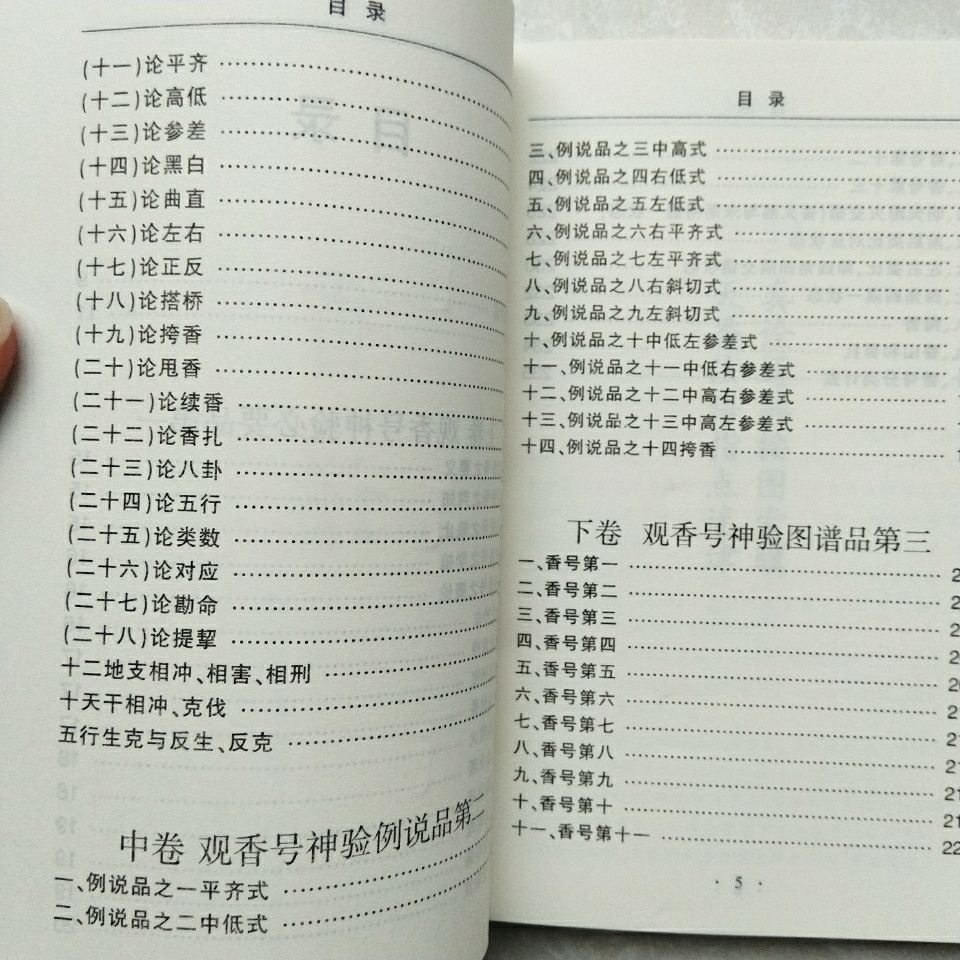 目 录
(十一)论平齐
(十二)论高低
(十三)论参差
(十四)论黑白
(十五)论曲直
(十六)论左右
(十七)论正反
(十八)论搭桥
(十九)论挎香
(二十)论甩香
(二十一)论续香
(二十二)论香扎
(二十三)论八卦
(二十四)论五行
(二十五)论类数
(二十六)论对应
(二十七)论勘命
(二十八)论提挈
十二地支相冲、相害、相刑
十天干相冲、克伐
五行生克与反生、反克
中卷 观香号神验例说品第二
一、例说品之一平齐式
二、例说品之二中低式
目 录
三、例说品之三中高式
四、例说品之四右低式
五、例说品之五左低式
六、例说品之六右平齐式
七、例说品之七左平齐式
八、例说品之八右斜切式
九、例说品之九左斜切式
十、例说品之十中低左参差式
十一、例说品之十一中低右参差式
十二、例说品之十二中高右参差式
十三、例说品之十三中高左参差式
十四、例说品之十四挎香
下卷 观香号神验图谱品第三
一、香号第一
二、香号第二
三、香号第三
四、香号第四
五、香号第五
六、香号第六
七、香号第七
八、香号第八
九、香号第九
十、香号第十
十一、香号第十一
· 5 ·